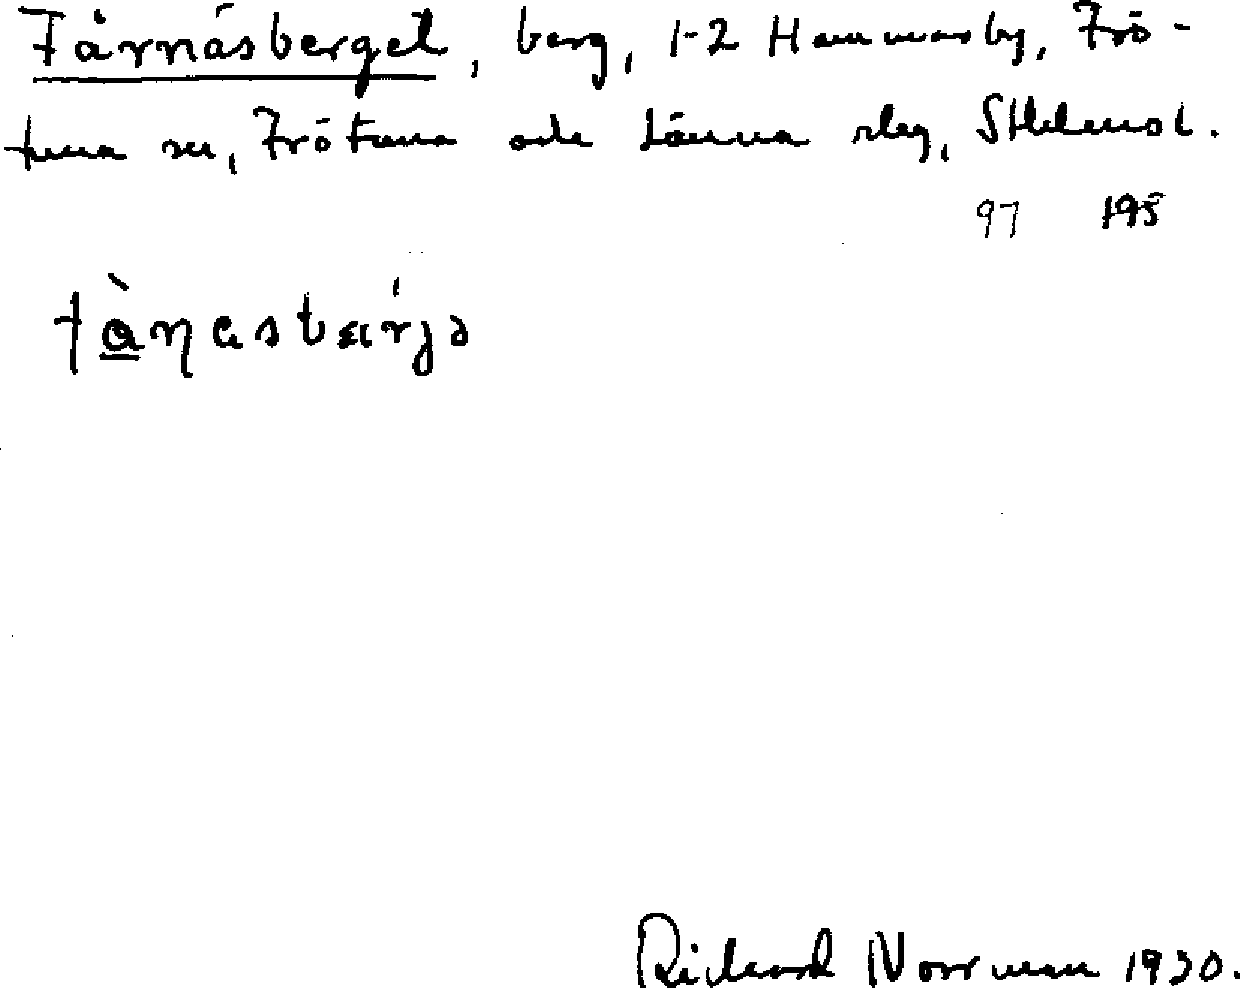 Fårnäsberget, berg, 1-2 Hammarby, Frö-
tuna sn, Frötuna och Länna slg, Sthlms l.
97 195
Rickard Norrman 1930.